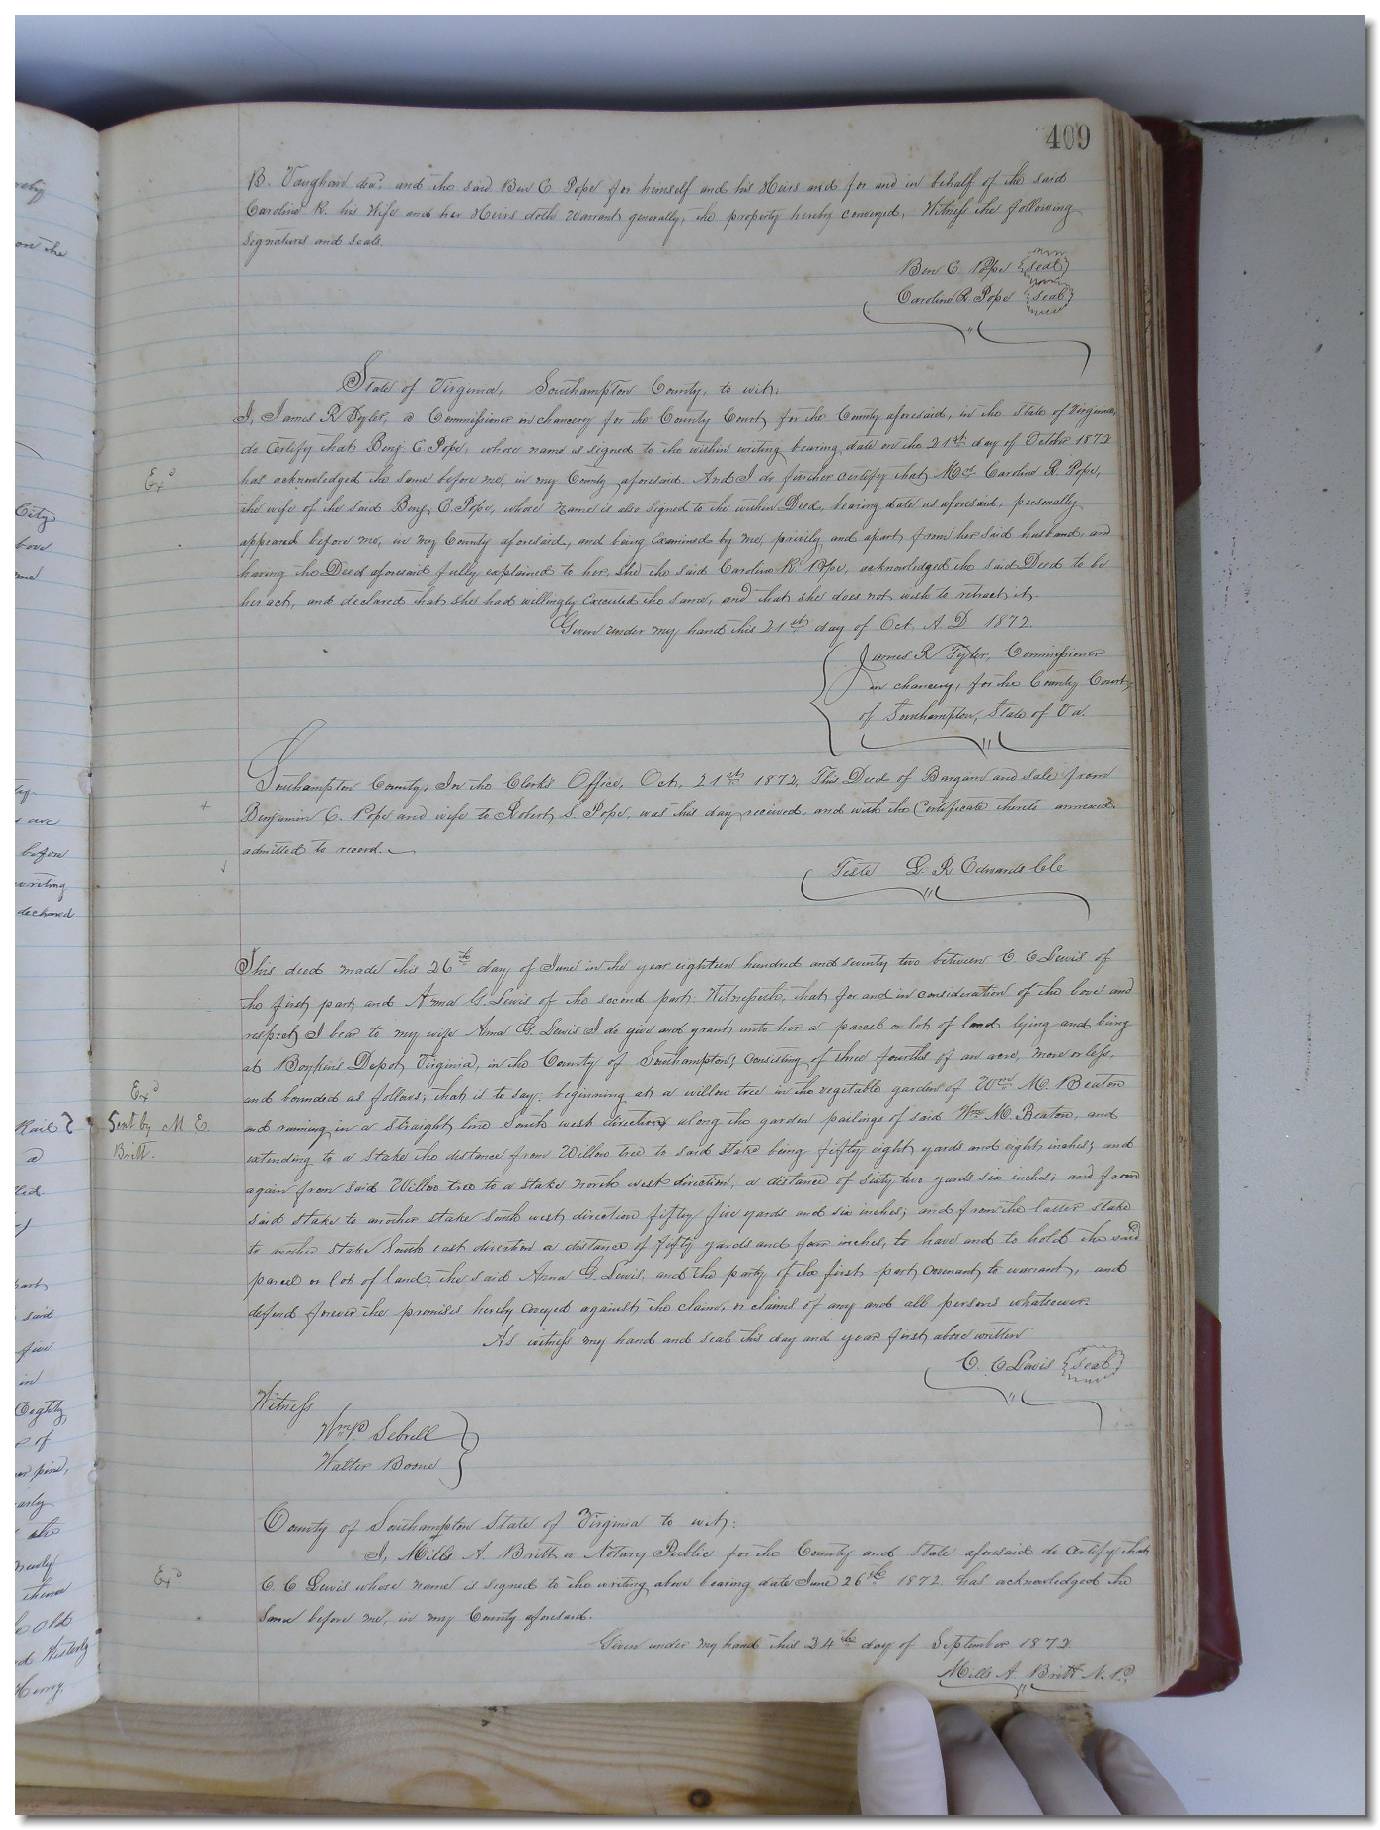 409
B. Vaughan decd. and the said Ben C. Pope for himself and his Heirs and for and in behalf of the said
Caroline R. his Wife and her Heirs doth Warrant generally, the property hereby conveyed, Witness the following
signatures and seals.
Ben C. Pope {seal}
Caroline R. Pope {seal}
State of Virginia, Southampton County, to wit:
I, James R Tyler, a Commissioner in chancery for the County Court, for the County aforesaid, in the State of Virginia,
do Certify that Benj. C. Pope, whose name is signed to the within writing bearing date on the 21st day of October 1872
Exd
has acknowledged the same before me, in my County aforesaid. And I do further certify that Mrs Caroline R. Pope,
the wife of the said Benj. C. Pope, whose name is also signed to the within Deed, bearing date as aforesaid, personally
appeared before me, in my County aforesaid, and being Examined by me, privily and apart from her said husband, and
having the Deed aforesaid fully explained to her, she the said Caroline R. Pope, acknowledged the said Deed to be
her act, and declared that she had willingly Executed the same, and that she does not wish to retract it.
Given under my hand this 21st day of Oct. A.D 1872.
James R Tyler, Commissioner
in chancery, for the County Court,
of Southampton, State of Va.
Southampton County, In the Clerk's Office, Oct. 21st 1872, This Deed of Bargain and sale from
Benjamin C. Pope and wife to Robert S. Pope, was this day received, and with the Certificate thereto annexed
admitted to record.
Teste L. R Edwards Clk
This deed made this 26th day of June in the year eighteen hundred and seventy two between C. C Lewis of
the first part, and Anna G. Lewis of the second part. Witnesseth, that for and in consideration of the love and
respect I bear to my wife Anna G. Lewis I do give and grant unto her a parcel or lot of land lying and being
at Boykin's Depot, Virginia, in the County of Southampton, consisting of three fourths of an acre, more or less,
Exd
and bounded as follows; that is to say: beginning at a willow tree in the vegetable garden of Wm. M. Beaton
Sent by M E
and running in a straight line South west direction along the garden pailings of said Wm. M. Beaton, and
Britt.
extending to a Stake the distance from Willow tree to said stake being fifty eight yards and eight inches; and
again from said Willow tree to a stake north west direction, a distance of sixty two yards six inches; and from
said stake to another stake South west direction fifty five yards and six inches; and from the latter stake
to another stake South east direction a distance of fifty yards and four inches, to have and to hold the said
parcel or lot of land, the said Anna G. Lewis, and the party of the first part, covenant to warrant, and
defend forever the premises hereby conveyed against the claim, or claims of any and all persons whatsoever.
As witness my hand and seal this day and year first above written
C. C Lewis {seal}
Witness
Wm P. Sebrell
Walter Boone
County of Southampton State of Virginia to wit:
I, Mills A. Britt a Notary Public for the County and State aforesaid do Certify that
Exd
C. C Lewis whose name is signed to the writing above bearing date June 26th 1872 has acknowledged the
same before me, in my County aforesaid.
Given under my hand this 24th day of September 1872
Mills A. Britt N.P.